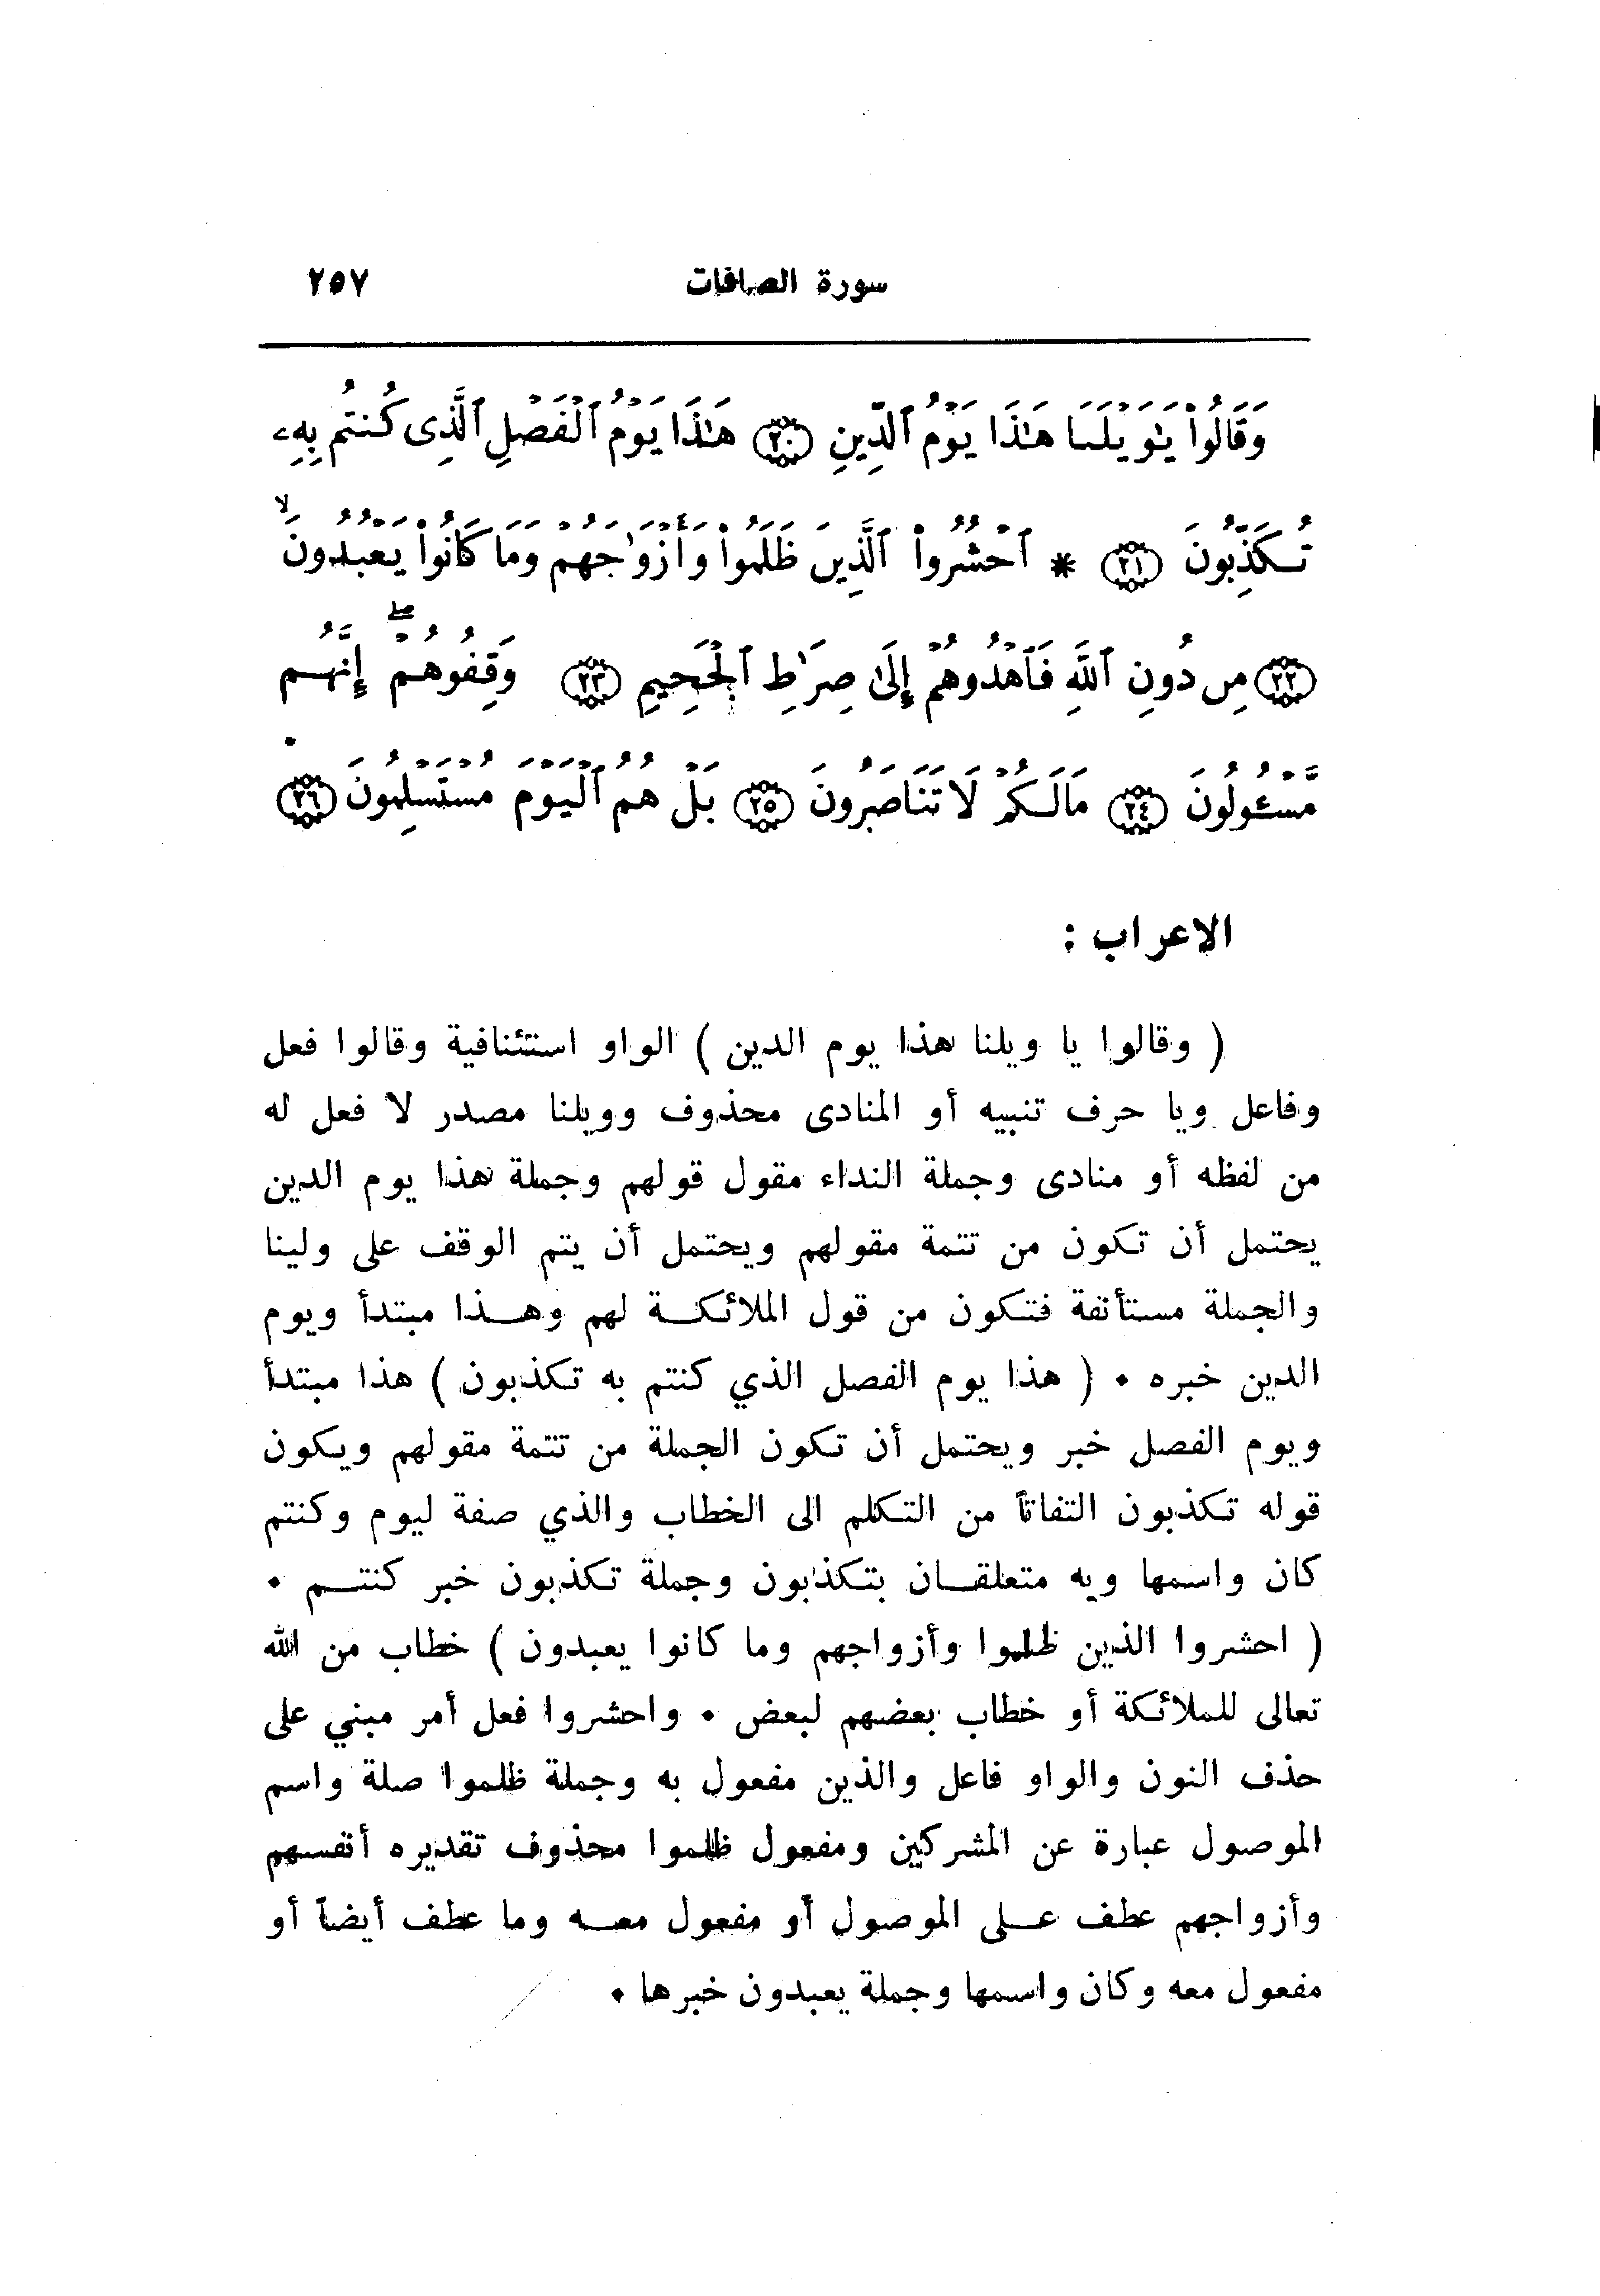 سورة الصافات ٢٥٧
وَقَالُوا۟ يَٰوَيْلَنَا هَٰذَا يَوْمُ ٱلدِّينِ ٢٠ هَٰذَا يَوْمُ ٱلْفَصْلِ ٱلَّذِى كُنتُم بِهِۦ
تُكَذِّبُونَ ٢١ * ٱحْشُرُوا۟ ٱلَّذِينَ ظَلَمُوا۟ وَأَزْوَٰجَهُمْ وَمَا كَانُوا۟ يَعْبُدُونَ ۙ
٢٢ مِن دُونِ ٱللَّهِ فَٱهْدُوهُمْ إِلَىٰ صِرَٰطِ ٱلْجَحِيمِ ٢٣ وَقِفُوهُمْ ۖ إِنَّهُم
مَّسْـُٔولُونَ ٢٤ مَا لَكُمْ لَا تَنَاصَرُونَ ٢٥ بَلْ هُمُ ٱلْيَوْمَ مُسْتَسْلِمُونَ ٢٦
الاعراب :
( وقالوا يا ويلنا هذا يوم الدين ) الواو استئنافية وقالوا فعل
وفاعل ويا حرف تنبيه أو المنادى محذوف وويلنا مصدر لا فعل له
من لفظه أو منادى وجملة النداء مقول قولهم وجملة هذا يوم الدين
يحتمل أن تكون من تتمة مقولهم ويحتمل أن يتم الوقف على ولينا
والجملة مستأنفة فتكون من قول الملائكة لهم وهذا مبتدأ ويوم
الدين خبره . ( هذا يوم الفصل الذي كنتم به تكذبون ) هذا مبتدأ
ويوم الفصل خبر ويحتمل أن تكون الجملة من تتمة مقولهم ويكون
قوله تكذبون التفاتاً من التكلم الى الخطاب والذي صفة ليوم وكنتم
كان واسمها وبه متعلقان بتكذبون وجملة تكذبون خبر كنتم .
( احشروا الذين ظلموا وأزواجهم وما كانوا يعبدون ) خطاب من الله
تعالى للملائكة أو خطاب بعضهم لبعض . واحشروا فعل أمر مبني على
حذف النون والواو فاعل والذين مفعول به وجملة ظلموا صلة واسم
الموصول عبارة عن المشركين ومفعول ظلموا محذوف تقديره أنفسهم
وأزواجهم عطف على الموصول أو مفعول معه وما عطف أيضاً أو
مفعول معه وكان واسمها وجملة يعبدون خبرها .